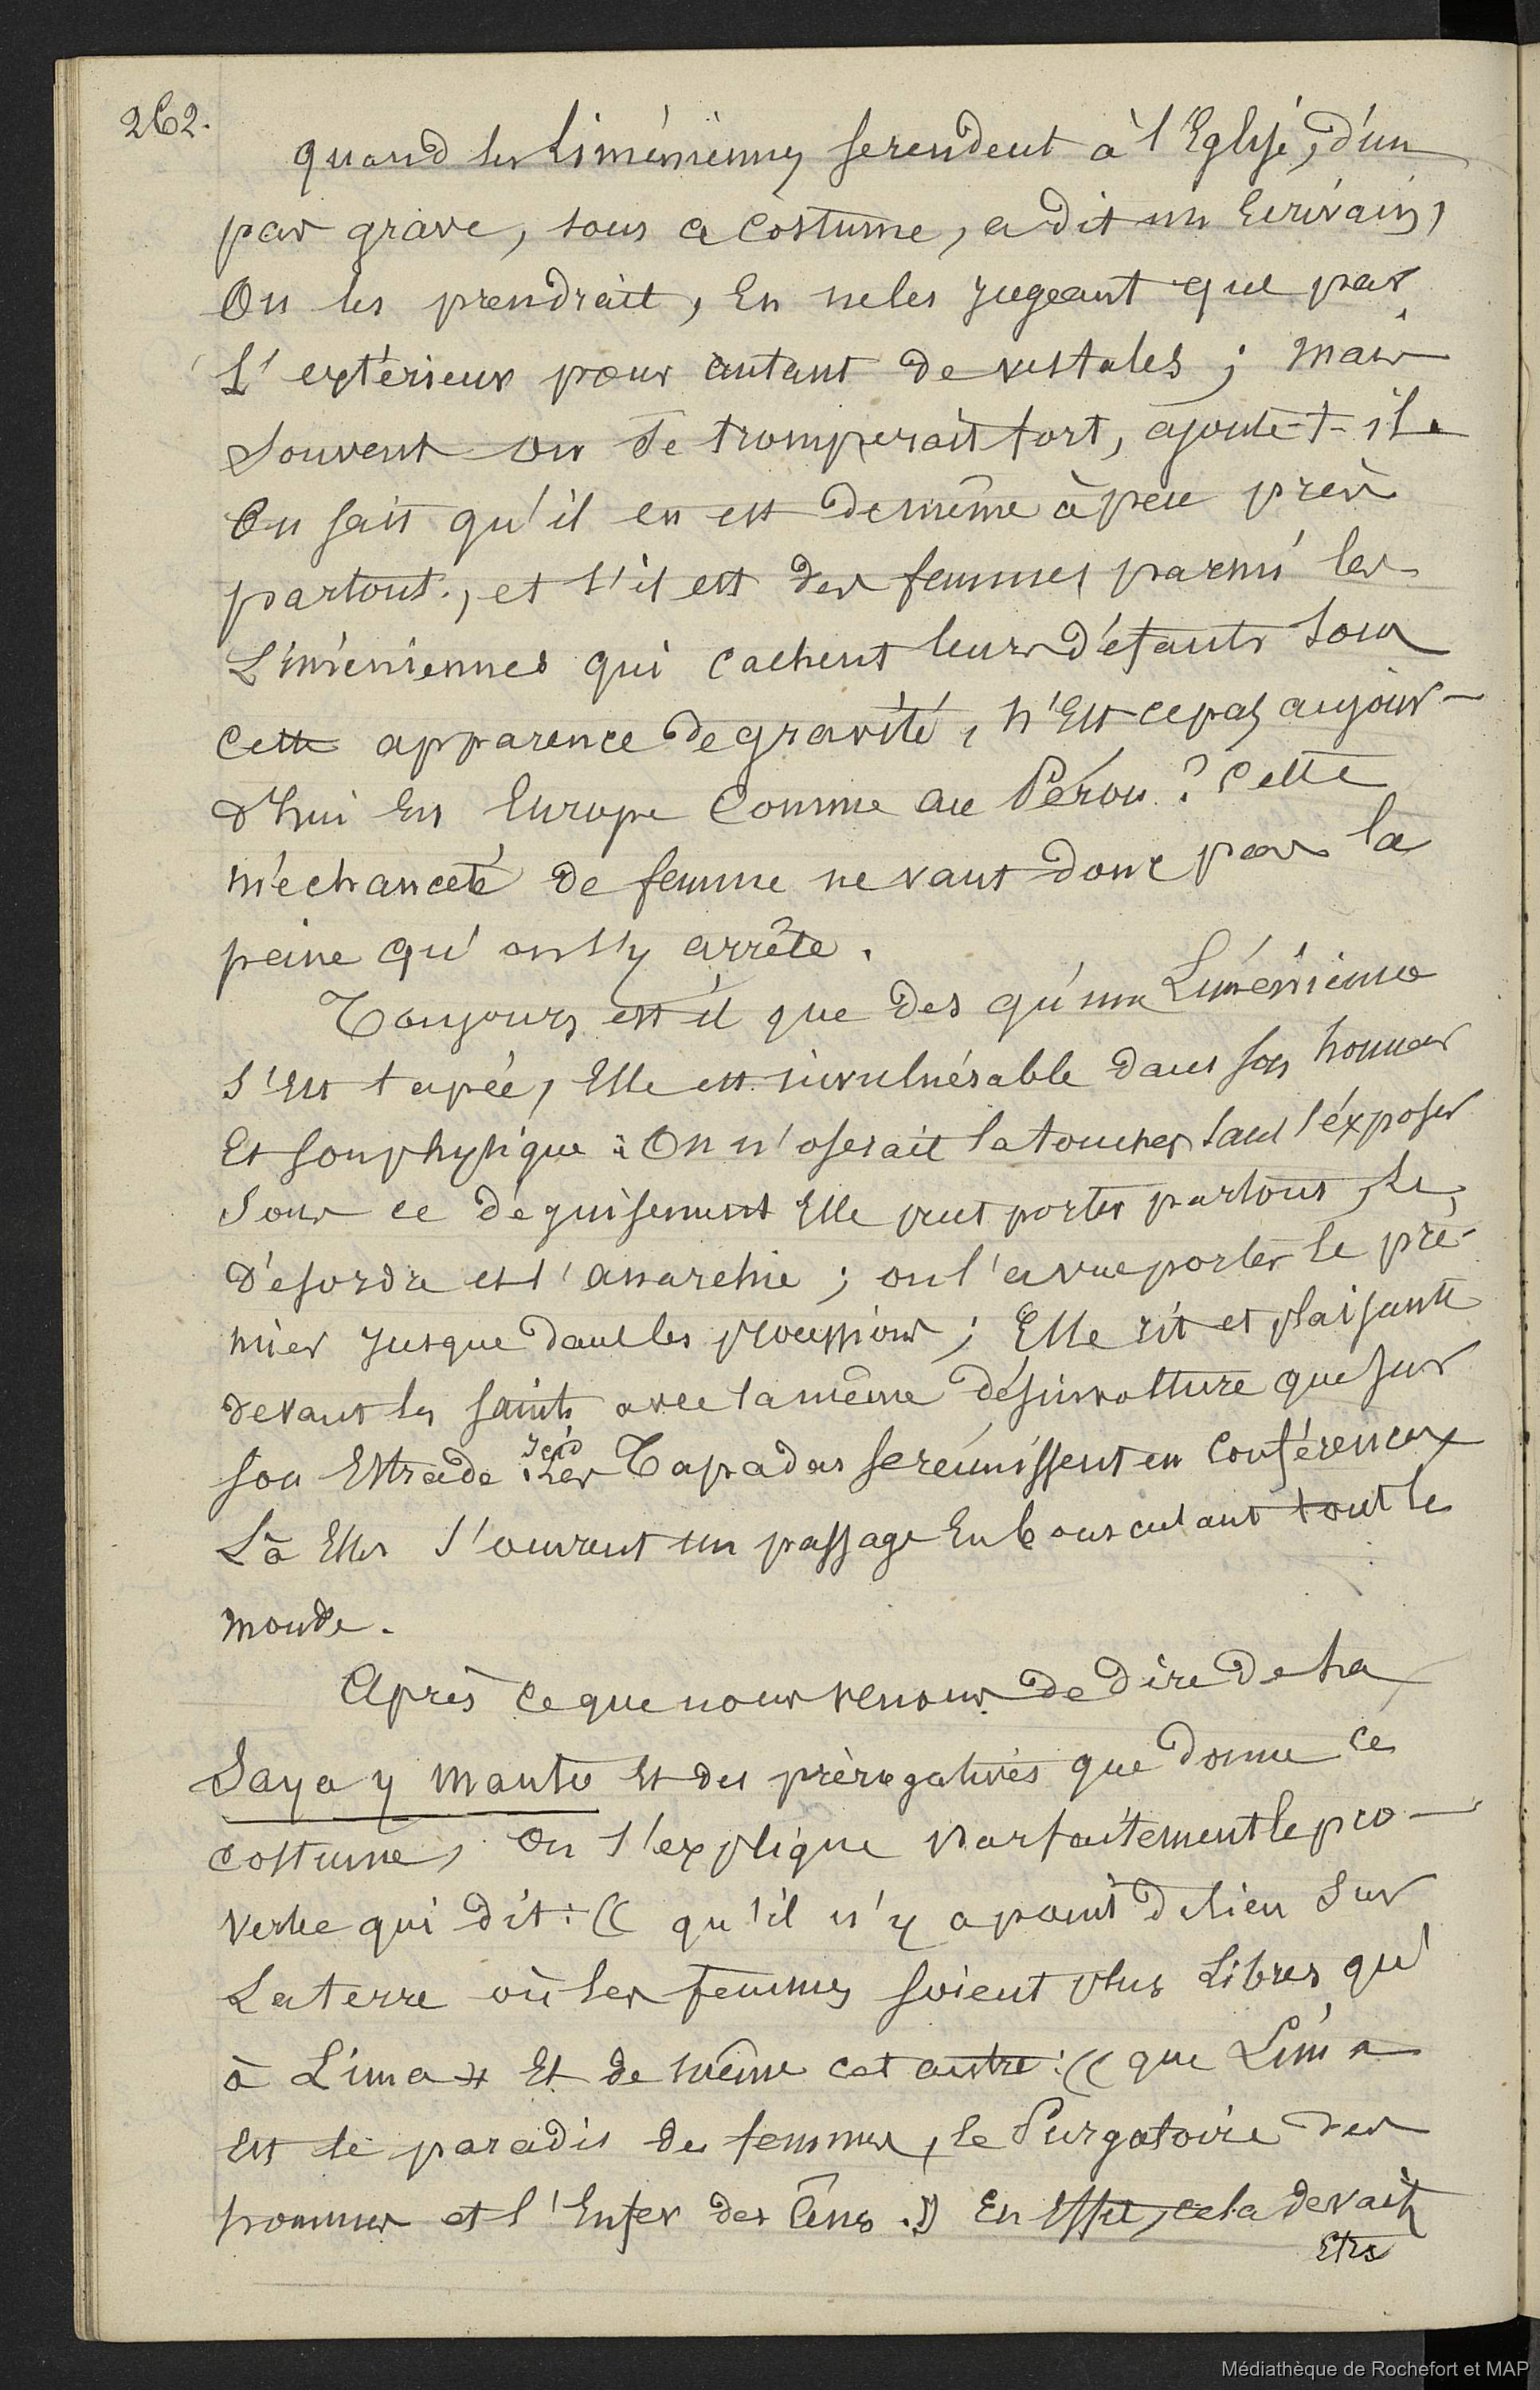 262.
quand les Liméniennes se rendent à l'Eglise, d'un
pas grave, sous ce Costume, a dit un Ecrivain,
On les prendrait, En ne les jugeant que par
L'extérieur pour autant de vestales ; mais
Souvent on se tromperait fort, ajoute-t-il.
On sait qu'il en est de même à peu près
partout, et s'il est des femmes parmi les
Liméniennes qui cachent leurs défauts sous
cette apparence de gravité, n'Est ce pas aujour-
d'hui En Europe Comme au Pérou ? Cette
méchanceté de femme ne vaut donc pas la
peine qu'on s'y arrête.
Toujours est il que des qu'une Liménienne
s'est tapée, Elle est invulnérable dans son honneur
Et son physique : On n'oserait la toucher sans s'exposer
Sous ce déguisement Elle peut porter partout, le
Désordre et l'anarchie ; on l'a vue porter le pre-
mier jusque dans les processions ; Elle rit et plaisante
devant les saints avec la même désinvolture que sur
son Estrade. Ici les Tapadas se réunissent en Conférences
Là Elles s'ouvrent un passage En bousculant tout le
monde.
Après ce que nous venons de dire de la
Saya y manto Et des prérogatives que donne ce
costume, On s'explique parfaitement le pro-
verbe qui dit : (( qu'il n'y a point de lieu sur
La terre où les femmes soient plus Libres qu'
à Lima )) Et de même cet autre : (( que Lima
Est le paradis des femmes, le Purgatoire des
hommes et l'Enfer des ânes. )) En Effet, cela devait
Etre
Médiathèque de Rochefort et MAP